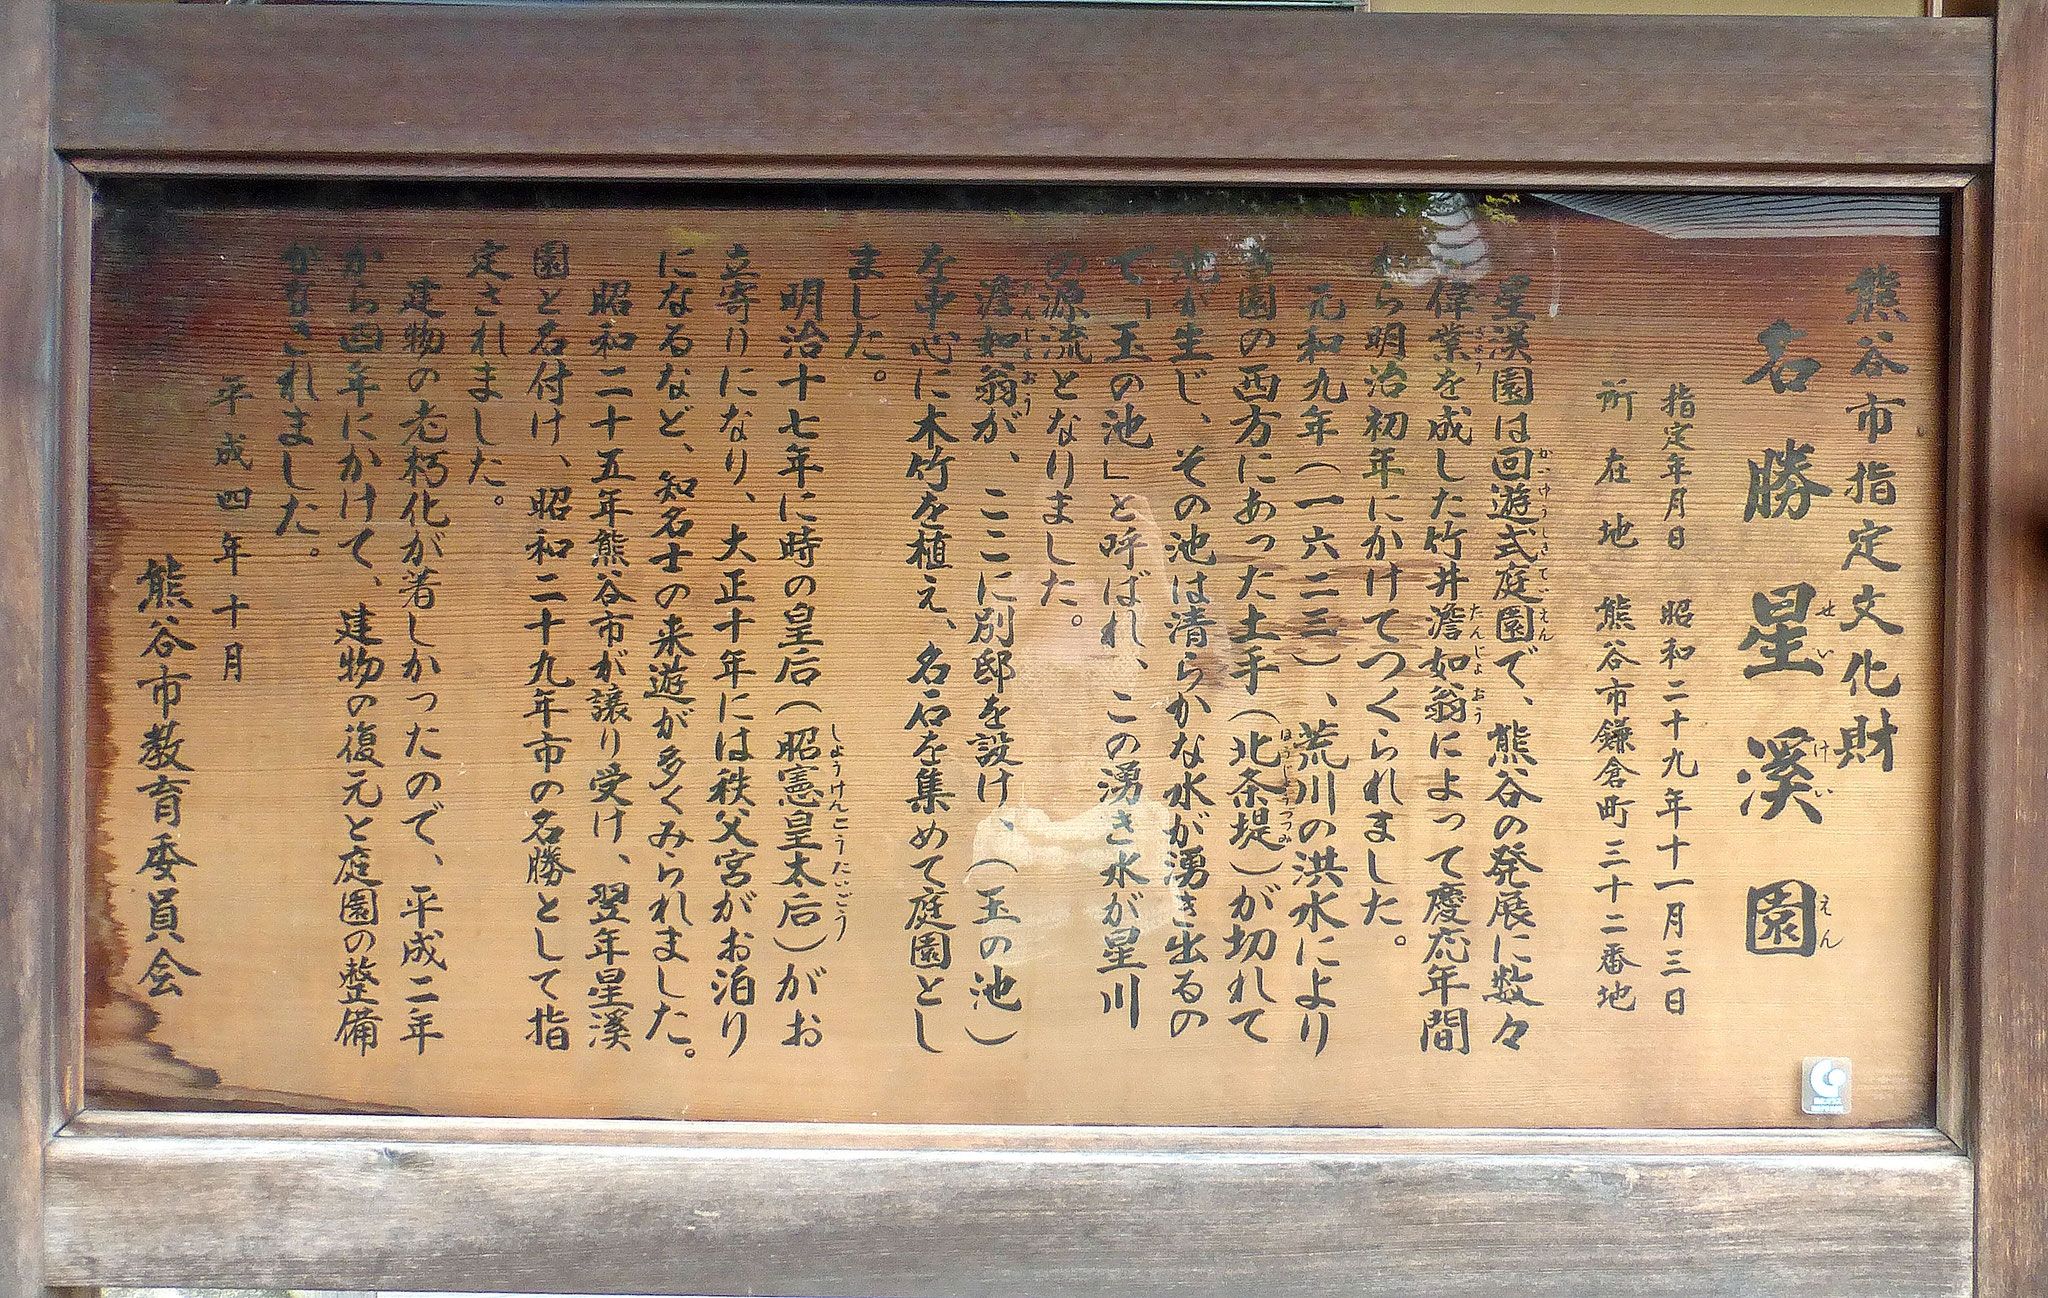 熊谷市指定文化財
名勝 星溪園
指定年月日 昭和二十九年十一月三日
所在地 熊谷市鎌倉町三十二番地
星渓園は回遊式庭園で、熊谷の発展に数々
偉業を成した竹井澹如翁によって慶応年間
から明治初年にかけてつくられました。
元和九年(一六二三)、荒川の洪水により
当園の西方にあった土手(北条堤)が切れて
池が生じ、その池は清らかな水が湧き出るの
で「玉の池」と呼ばれ、この湧き水が星川
の源流となりました。
澹如翁が、ここに別邸を設け、(玉の池)
を中心に木竹を植え、名石を集めて庭園とし
ました。
明治十七年に時の皇后(昭憲皇太后)がお
立寄りになり、大正十年には秩父宮がお泊り
になるなど、知名士の来遊が多くみられました。
昭和二十五年熊谷市が譲り受け、翌年星溪
園と名付け、昭和二十九年市の名勝として指
定されました。
建物の老朽化が著しかったので、平成二年
から四年にかけて、建物の復元と庭園の整備
がなされました。
平成四年十月
熊谷市教育委員会